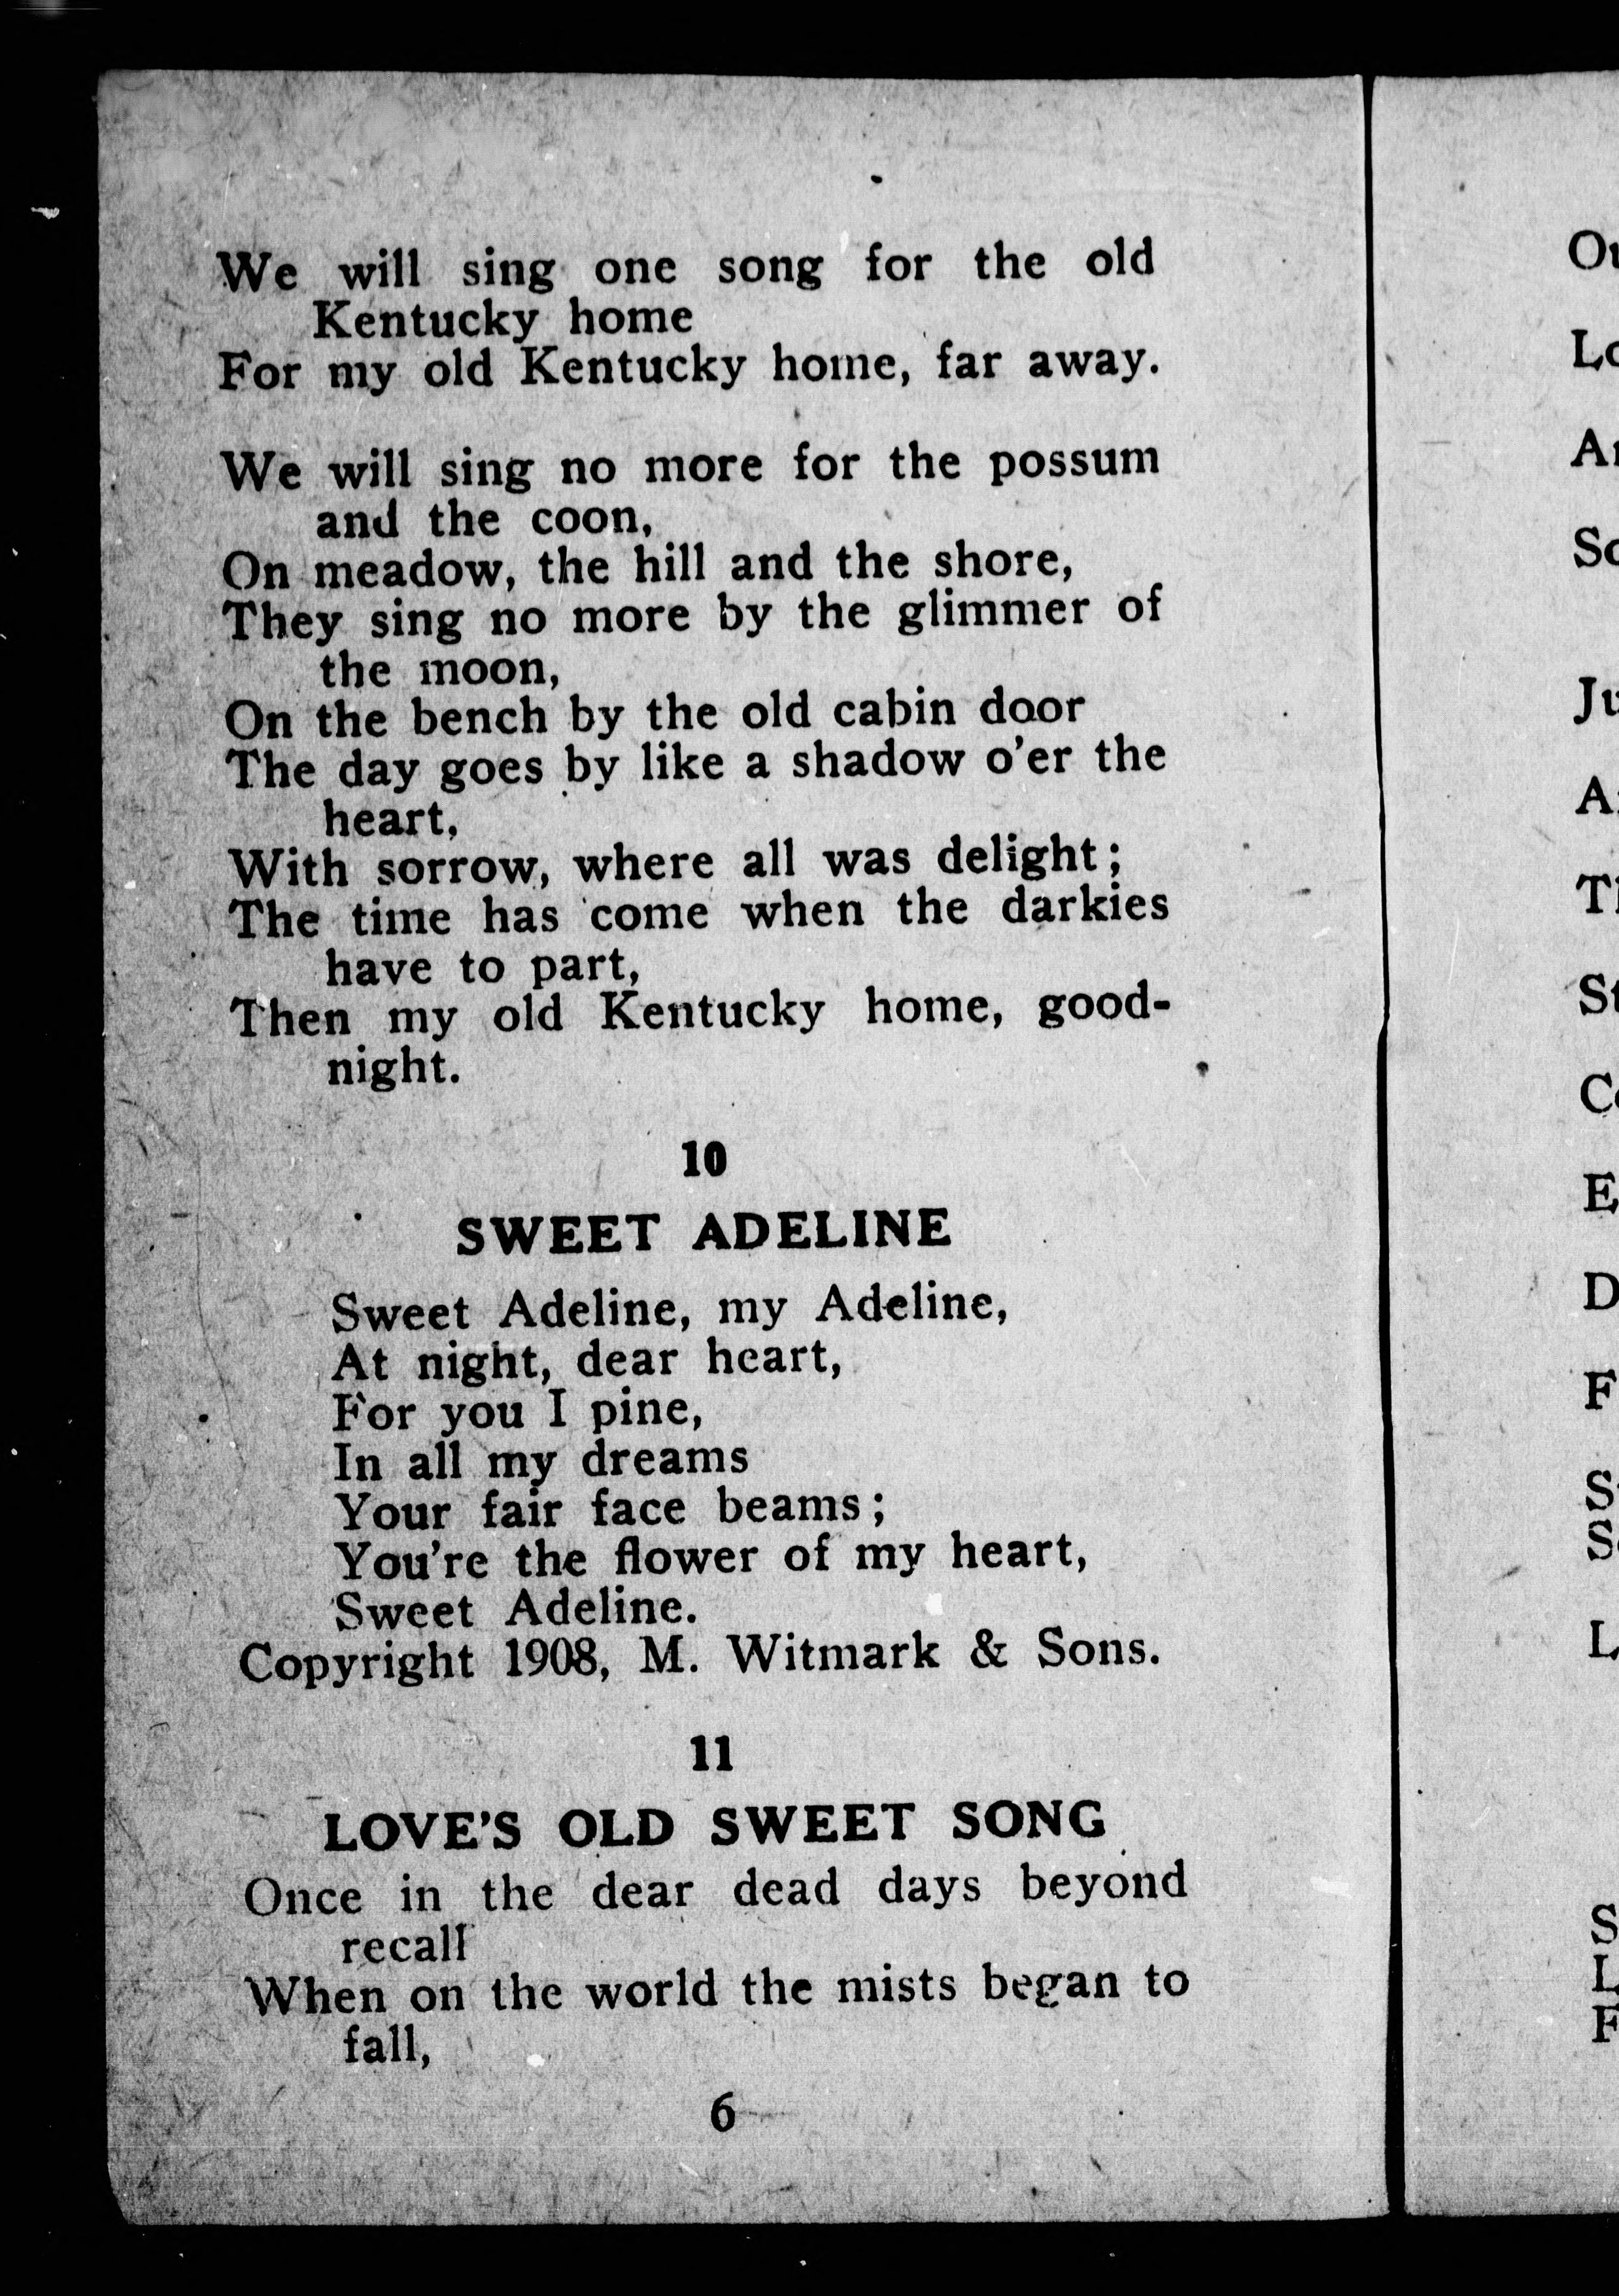 We will sing one song for the old
Kentucky home
For my old Kentucky home, far away.
We will sing no more for the possum
and the coon,
On meadow, the hill and the shore,
They sing no more by the glimmer of
the moon,
On the bench by the old cabin door
The day goes by like a shadow o'er the
heart,
With sorrow, where all was delight;
The time has come when the darkies
have to part,
Then my old Kentucky home, good-
night.
10
SWEET ADELINE
Sweet Adeline, my Adeline,
At night, dear heart,
For you I pine,
In all my dreams
Your fair face beams;
You're the flower of my heart,
Sweet Adeline.
Copyright 1908, M. Witmark & Sons.
11
LOVE'S OLD SWEET SONG
Once in the dear dead days beyond
recall
When on the world the mists began to
fall,
6